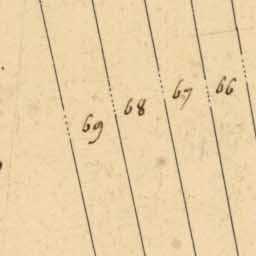 69 68 67 66